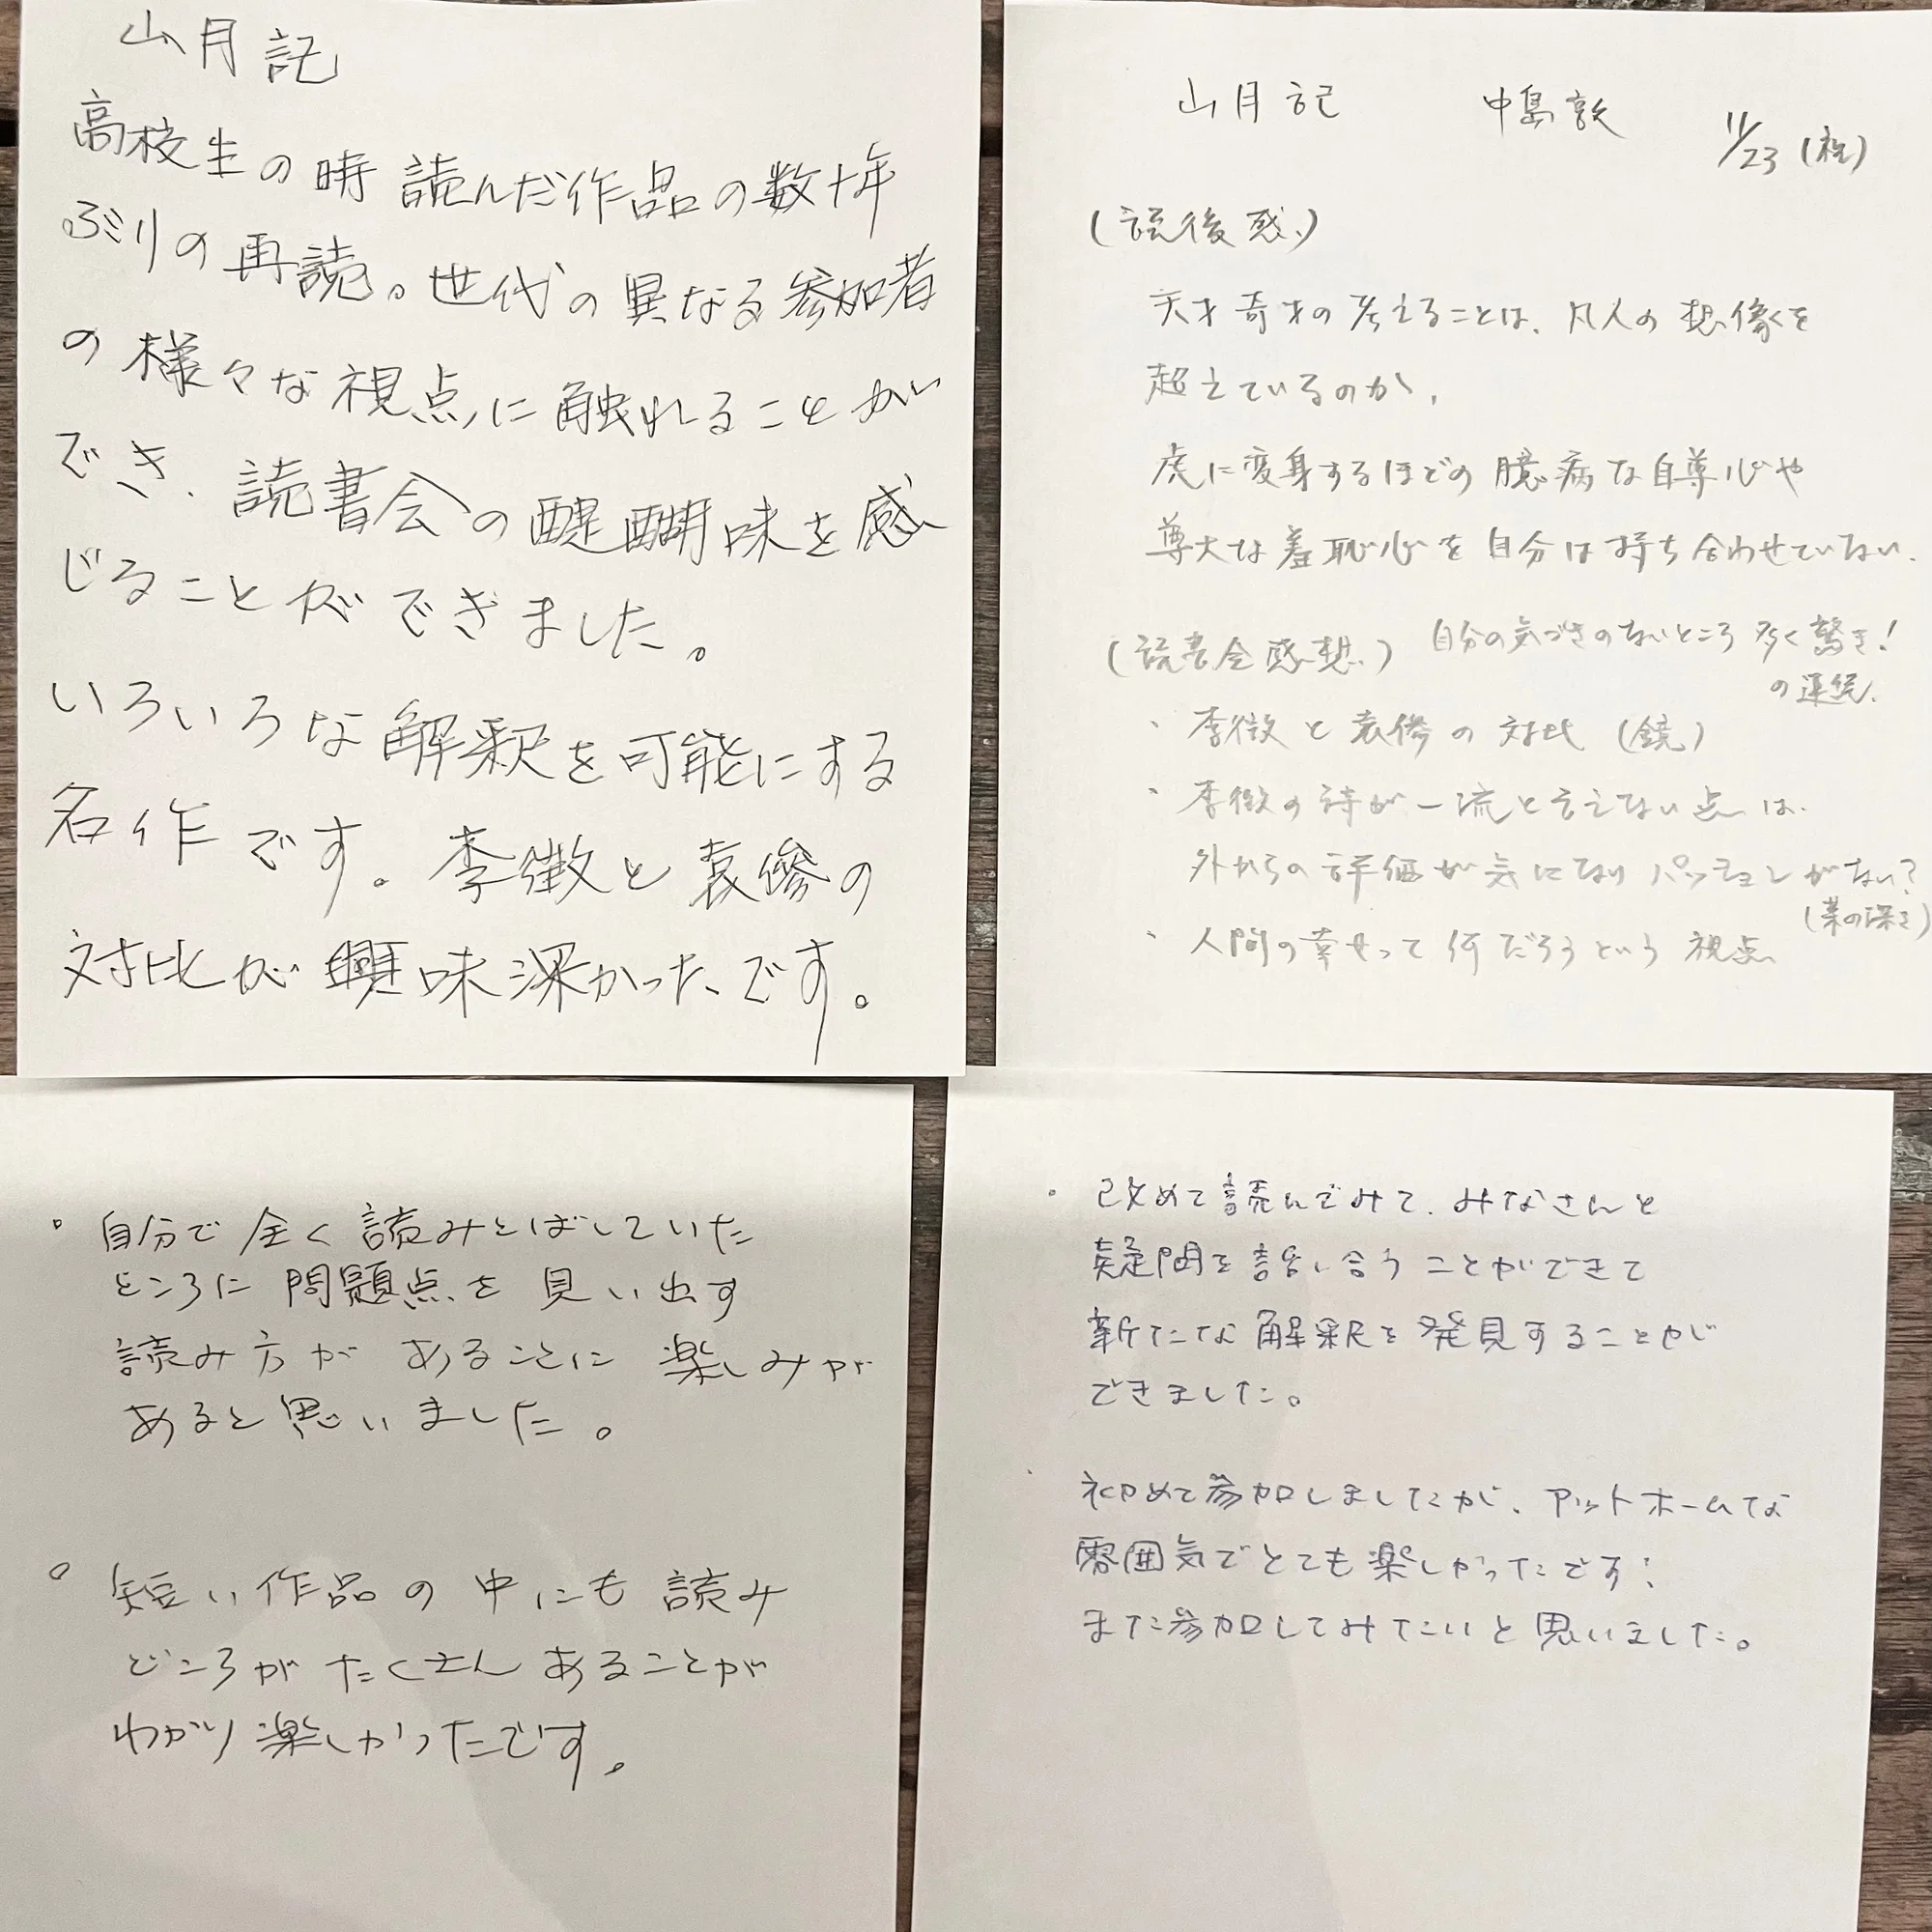 山月記
高校生の時読んだ作品の数十年
ぶりの再読。世代の異なる参加者
の様々な視点に触れることが
でき、読書会の醍醐味を感
じることができました。
いろいろな解釈を可能にする
名作です。李徴と袁傪の
対比が興味深かったです。
山月記 中島敦 11/23(祝)
(読後感)
天才奇才の考えることは、凡人の想像を
超えているのか、
虎に変身するほどの臆病な自尊心や
尊大な羞恥心を自分は持ち合わせていない、
(読書会感想) 自分の気づきのないところ多く驚き!
の連続、
・李徴と袁傪の対比(鏡)
・李徴の詩が一流と言えない点は、
外からの評価が気になりパッションがない?
(業の深さ)
・人間の幸せって何だろうという視点
・自分で全く読みとばしていた
ところに問題点を見い出す
読み方があることに楽しみが
あると思いました。
・短い作品の中にも読み
どころがたくさんあることが
わかり楽しかったです。
・改めて読んでみて、みなさんと
疑問を話し合うことができて
新たな解釈を発見することが
できました。
・初めて参加しましたが、アットホームな
雰囲気でとても楽しかったです!
また参加してみたいと思いました。